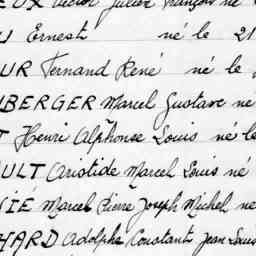 EUX Victor Julien François né
U Ernest né le 21
UR Fernand René né le
BERGER Marcel Gustave né
T Henri Alphonse Louis né le
ULT Aristide Marcel Louis né
IÉ Marcel Pierre Joseph Michel né
HARD Adolphe Constant Jean Louis